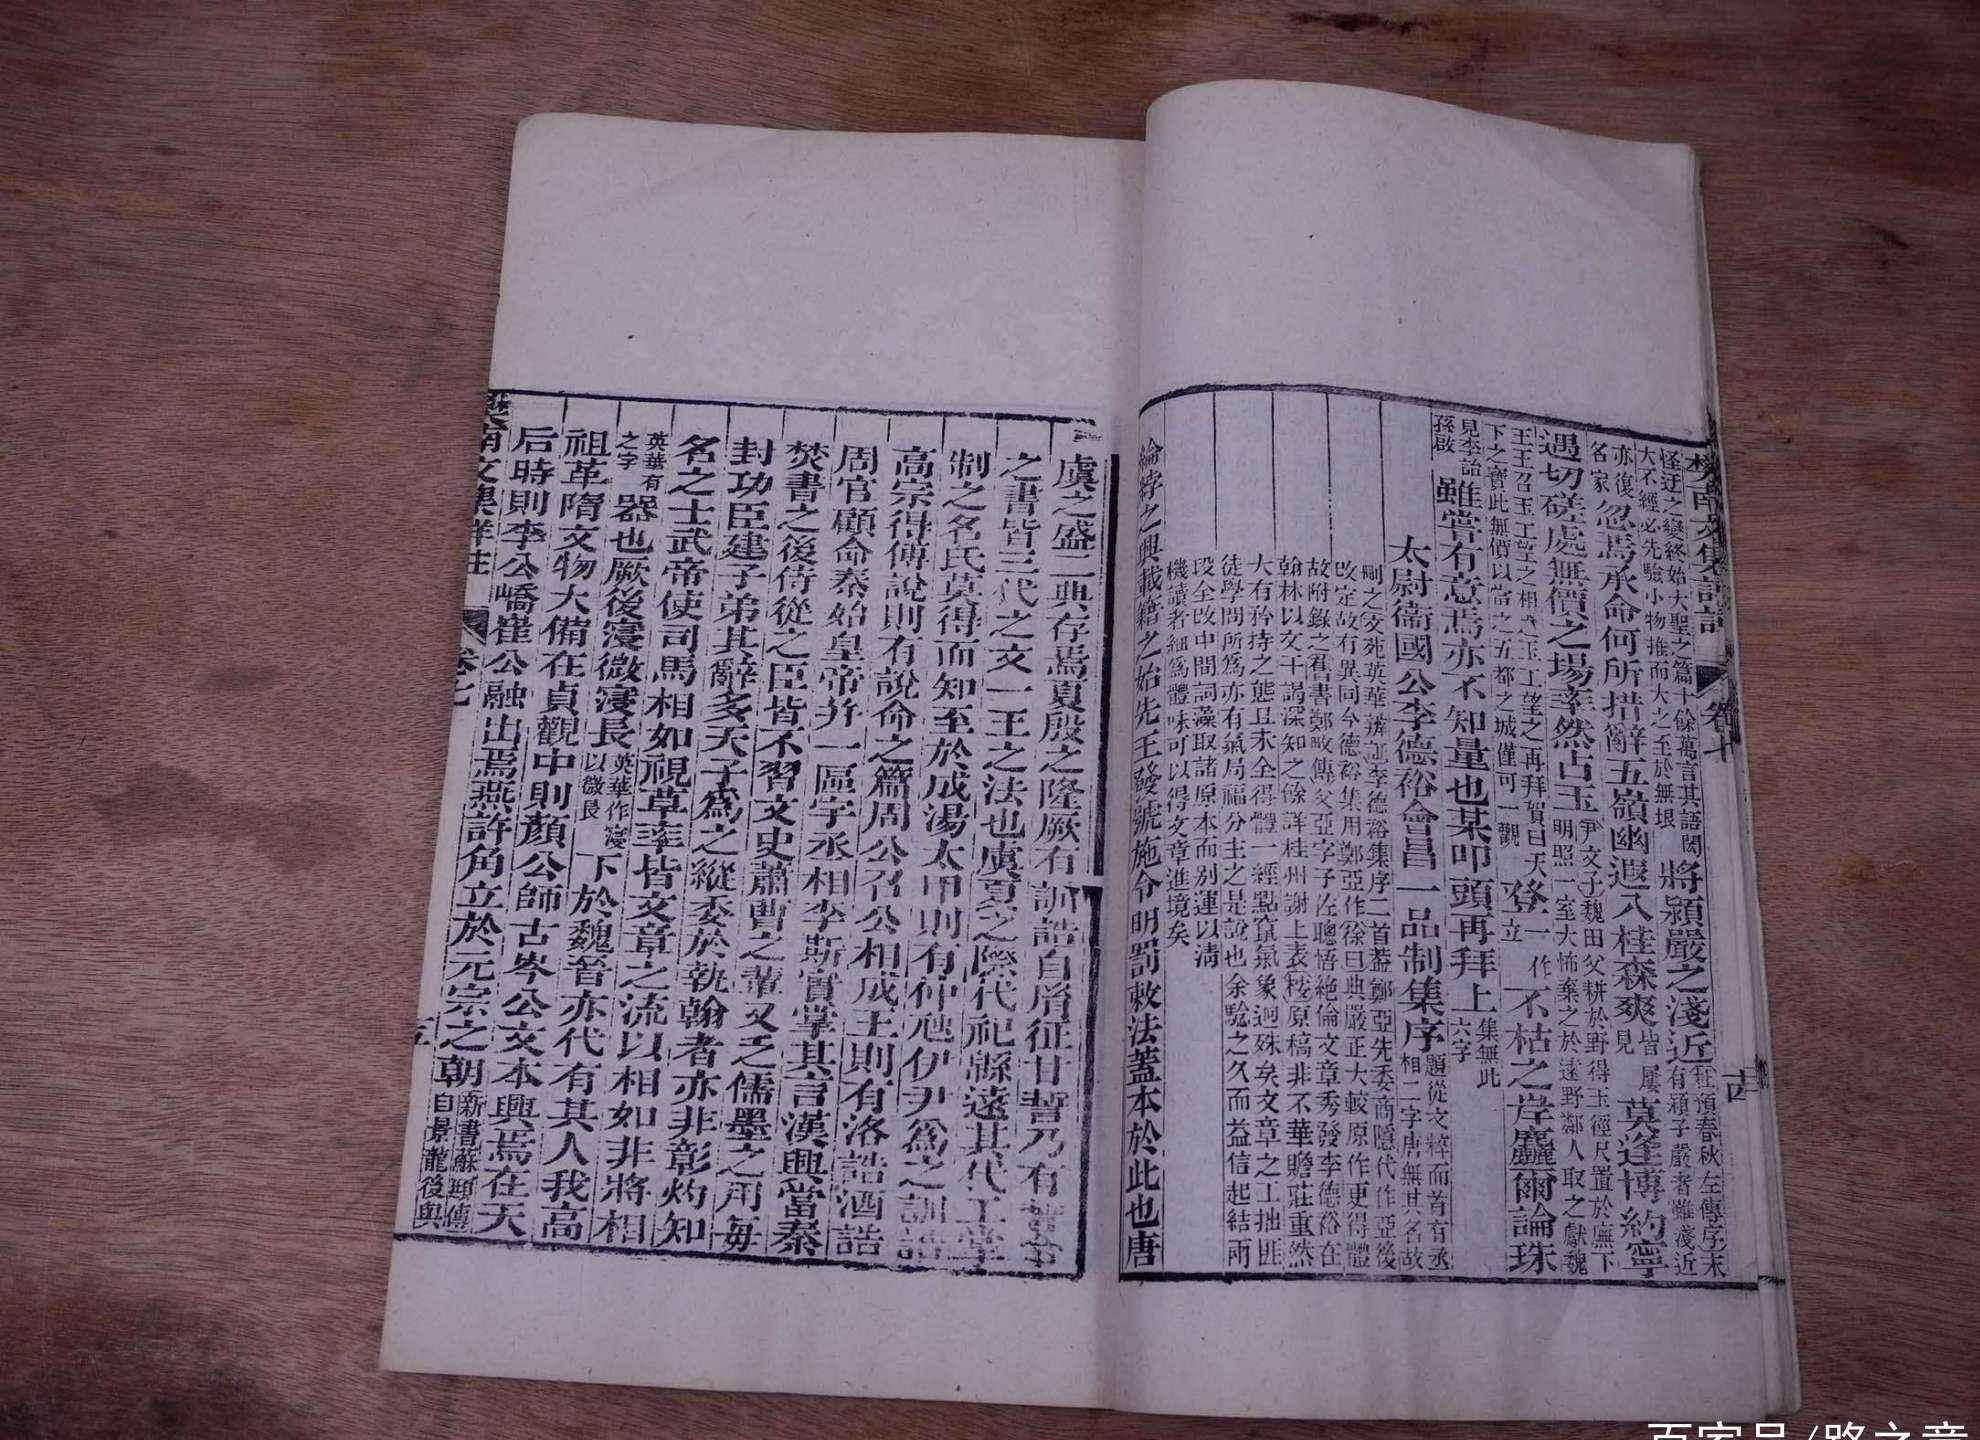 樊南文集詳註
卷七
十四
怪迂之變終始大聖之篇十餘萬言其語閎
大不經必先驗小物推而大之至於無垠
將潁嚴之淺近
杜預春秋左傳序末
有潁子嚴者雖淺近
亦復
名家
忽焉承命何所措辭五嶺幽遐八桂森爽
皆屢
見
莫逢博約寧
遇切磋處無價之場率然占玉
尹文子魏田父耕於野得玉徑尺置於廡下
明照一室大怖棄之於遠野鄰人取之獻魏
王王召玉工望之
玉工望之再拜賀曰天
下之寶此無價以當之五都之城僅可一觀
登立
一作
不枯之岸麗爾論珠
見李詒
孫啟
雖嘗有意焉亦不知量也某叩頭再拜上
集無此
六字
太尉衞國公李德裕會昌一品制集序
題從文粹而首有丞
相二字唐無其名故
刪之文苑英華辨証李德裕集序二首葢鄭亞先委商隱代作亞後
改定故有異同今德裕集用鄭亞作徐曰典嚴正大較原作更得體
故附錄之舊書鄭畋傳父亞字子佐聰悟絕倫文章秀發李德裕在
翰林以文干謁深知之餘詳桂州謝上表按原稿非不華贍莊重然
大有矜持之態且未全得體一經點竄氣象迥殊矣文章之工拙匪
徒學問所為亦有氣局福分主之是說也余驗之久而益信起結兩
段全改中間詞藻取諸原本而別運以清
機讀者細為體味可以得文章進境矣
綸綍之興載籍之始先王發號施令明罰敕法蓋本於此也唐
虞之盛二典存焉夏殷之隆厥有訓誥自胤征甘誓乃有
之書皆三代之文一王之法也虞夏之際代祀緜遠其代工掌
制之名氏莫得而知至於成湯太甲則有仲虺伊尹爲之訓誥
高宗得傅說則有說命之篇周公召公相成王則有洛誥酒誥
周官顧命秦始皇帝并一區宇丞相李斯實掌其言漢興當秦
焚書之後侍從之臣皆不習文史蕭曹之輩又乏儒墨之用每
封功臣建子弟其辭多天子為之縱委於執翰者亦非彰灼知
名之士武帝使司馬相如視草率皆文章之流以相如非將相
英華有
之字
器也厥後寖微寖長
英華作寖
以微長
下於魏晉亦代有其人我高
祖革隋文物大備在貞觀中則顏公師古岑公文本興焉在天
后時則李公嶠崔公融出焉燕許角立於元宗之朝
新書蘇頲傳
自景龍後與
樊南文集詳註
卷七
十五
百家号/路之音